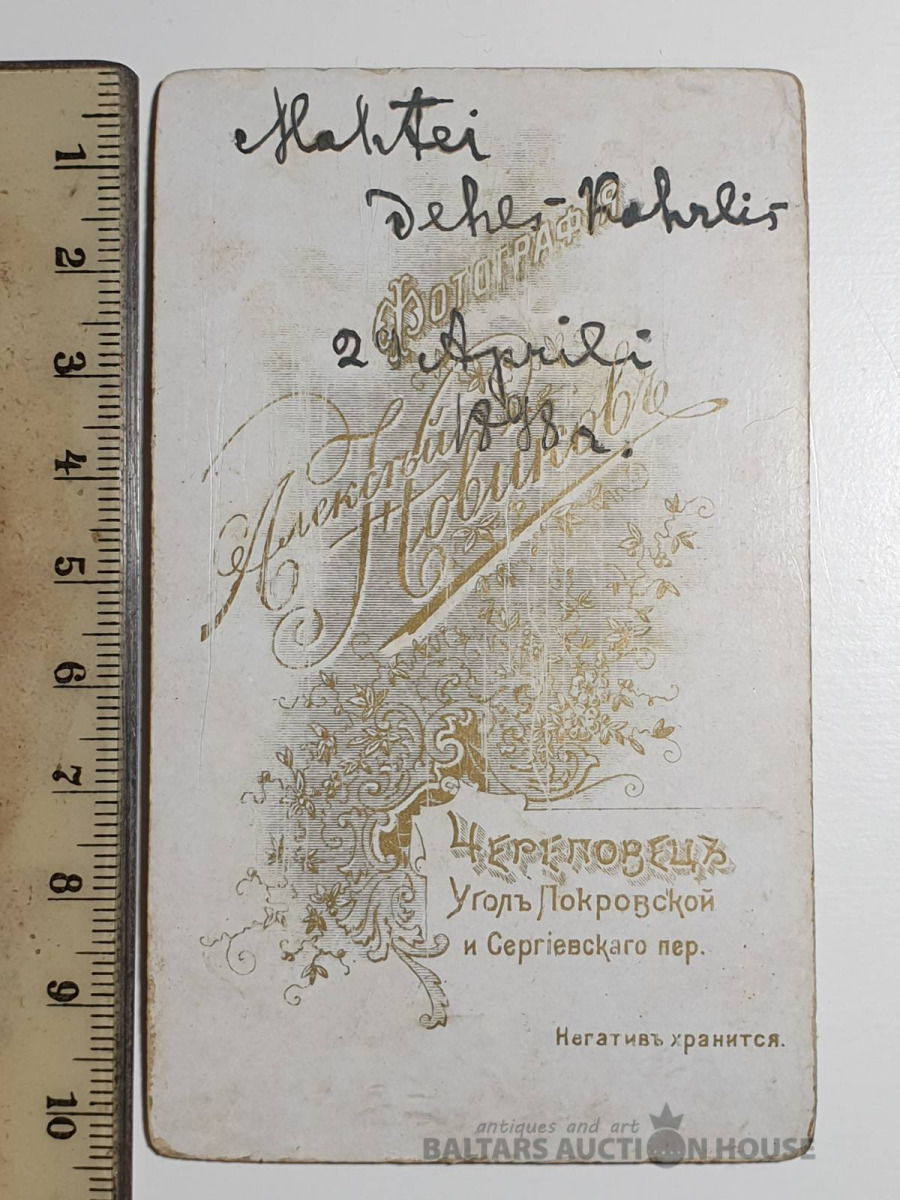 Dehls-Kahrlis
ФОТОГРАФІЯ
Aprili
1898
Алексѣй
Новиковъ
ЧЕРЕПОВЕЦЪ
Уголъ Покровской
и Сергіевскаго пер.
Негативъ хранится.
antiques and art
BALTARS AUCTION HOUSE
1
2
3
4
5
6
7
8
9
10